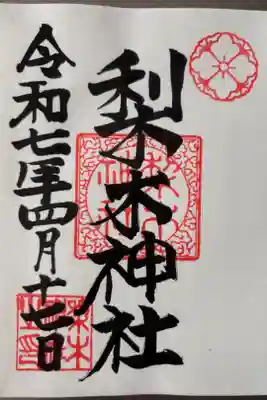 梨木神社
令和七年四月十七日